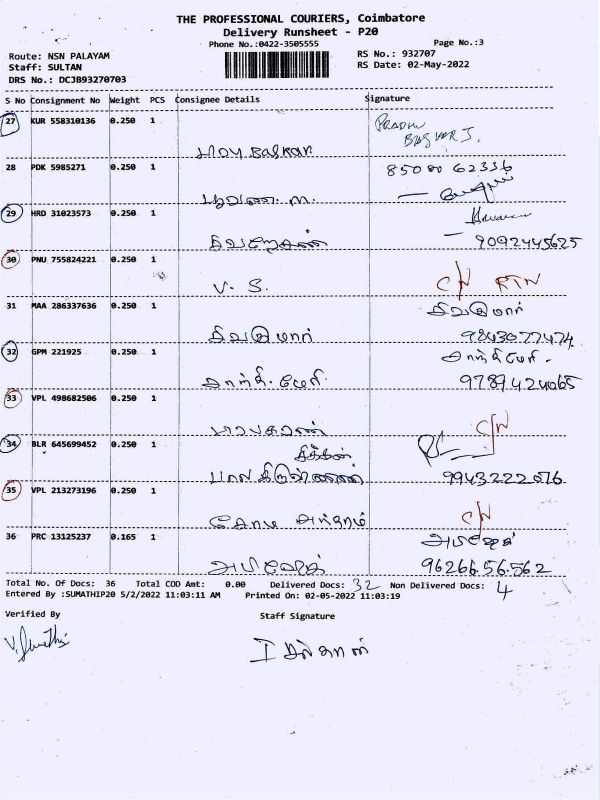 THE PROFESSIONAL COURIERS, Coimbatore
Delivery Runsheet - P20
Phone No.:0422-3505555
Page No.:3
Route: NSN PALAYAM
RS No.: 932707
Staff: SULTAN
RS Date: 02-May-2022
DRS No.: DCJB93270703
S No Consignment No Weight PCS Consignee Details Signature
27 KUR 558310136 0.250 1
PRADHU
BASKAR J.
Baskar
28 PDK 5985271 0.250 1
85080 62336
29 HRD 31023573 0.250 1
9092445625
30 PNU 755824221 0.250 1
V. S. C/N RTN
31 MAA 286337636 0.250 1
சிவகுமார்
சிவகுமார் 9843077474
32 GPM 221925 0.250 1
சாந்தி மேரி.
சாந்தி. மேரி. 9789424065
33 VPL 498682506 0.250 1
C/N
பிரபாகரன்
34 BLR 645699452 0.250 1
9943222076
35 VPL 213273196 0.250 1
C/N
36 PRC 13125237 0.165 1
அபிஷேக்
அபிஷேக் 96266.56.562
Total No. Of Docs: 36 Total COD Amt: 0.00 Delivered Docs: 32 Non Delivered Docs: 4
Entered By :SUMATHIP20 5/2/2022 11:03:11 AM Printed On: 02-05-2022 11:03:19
Verified By Staff Signature
V. Sumathi